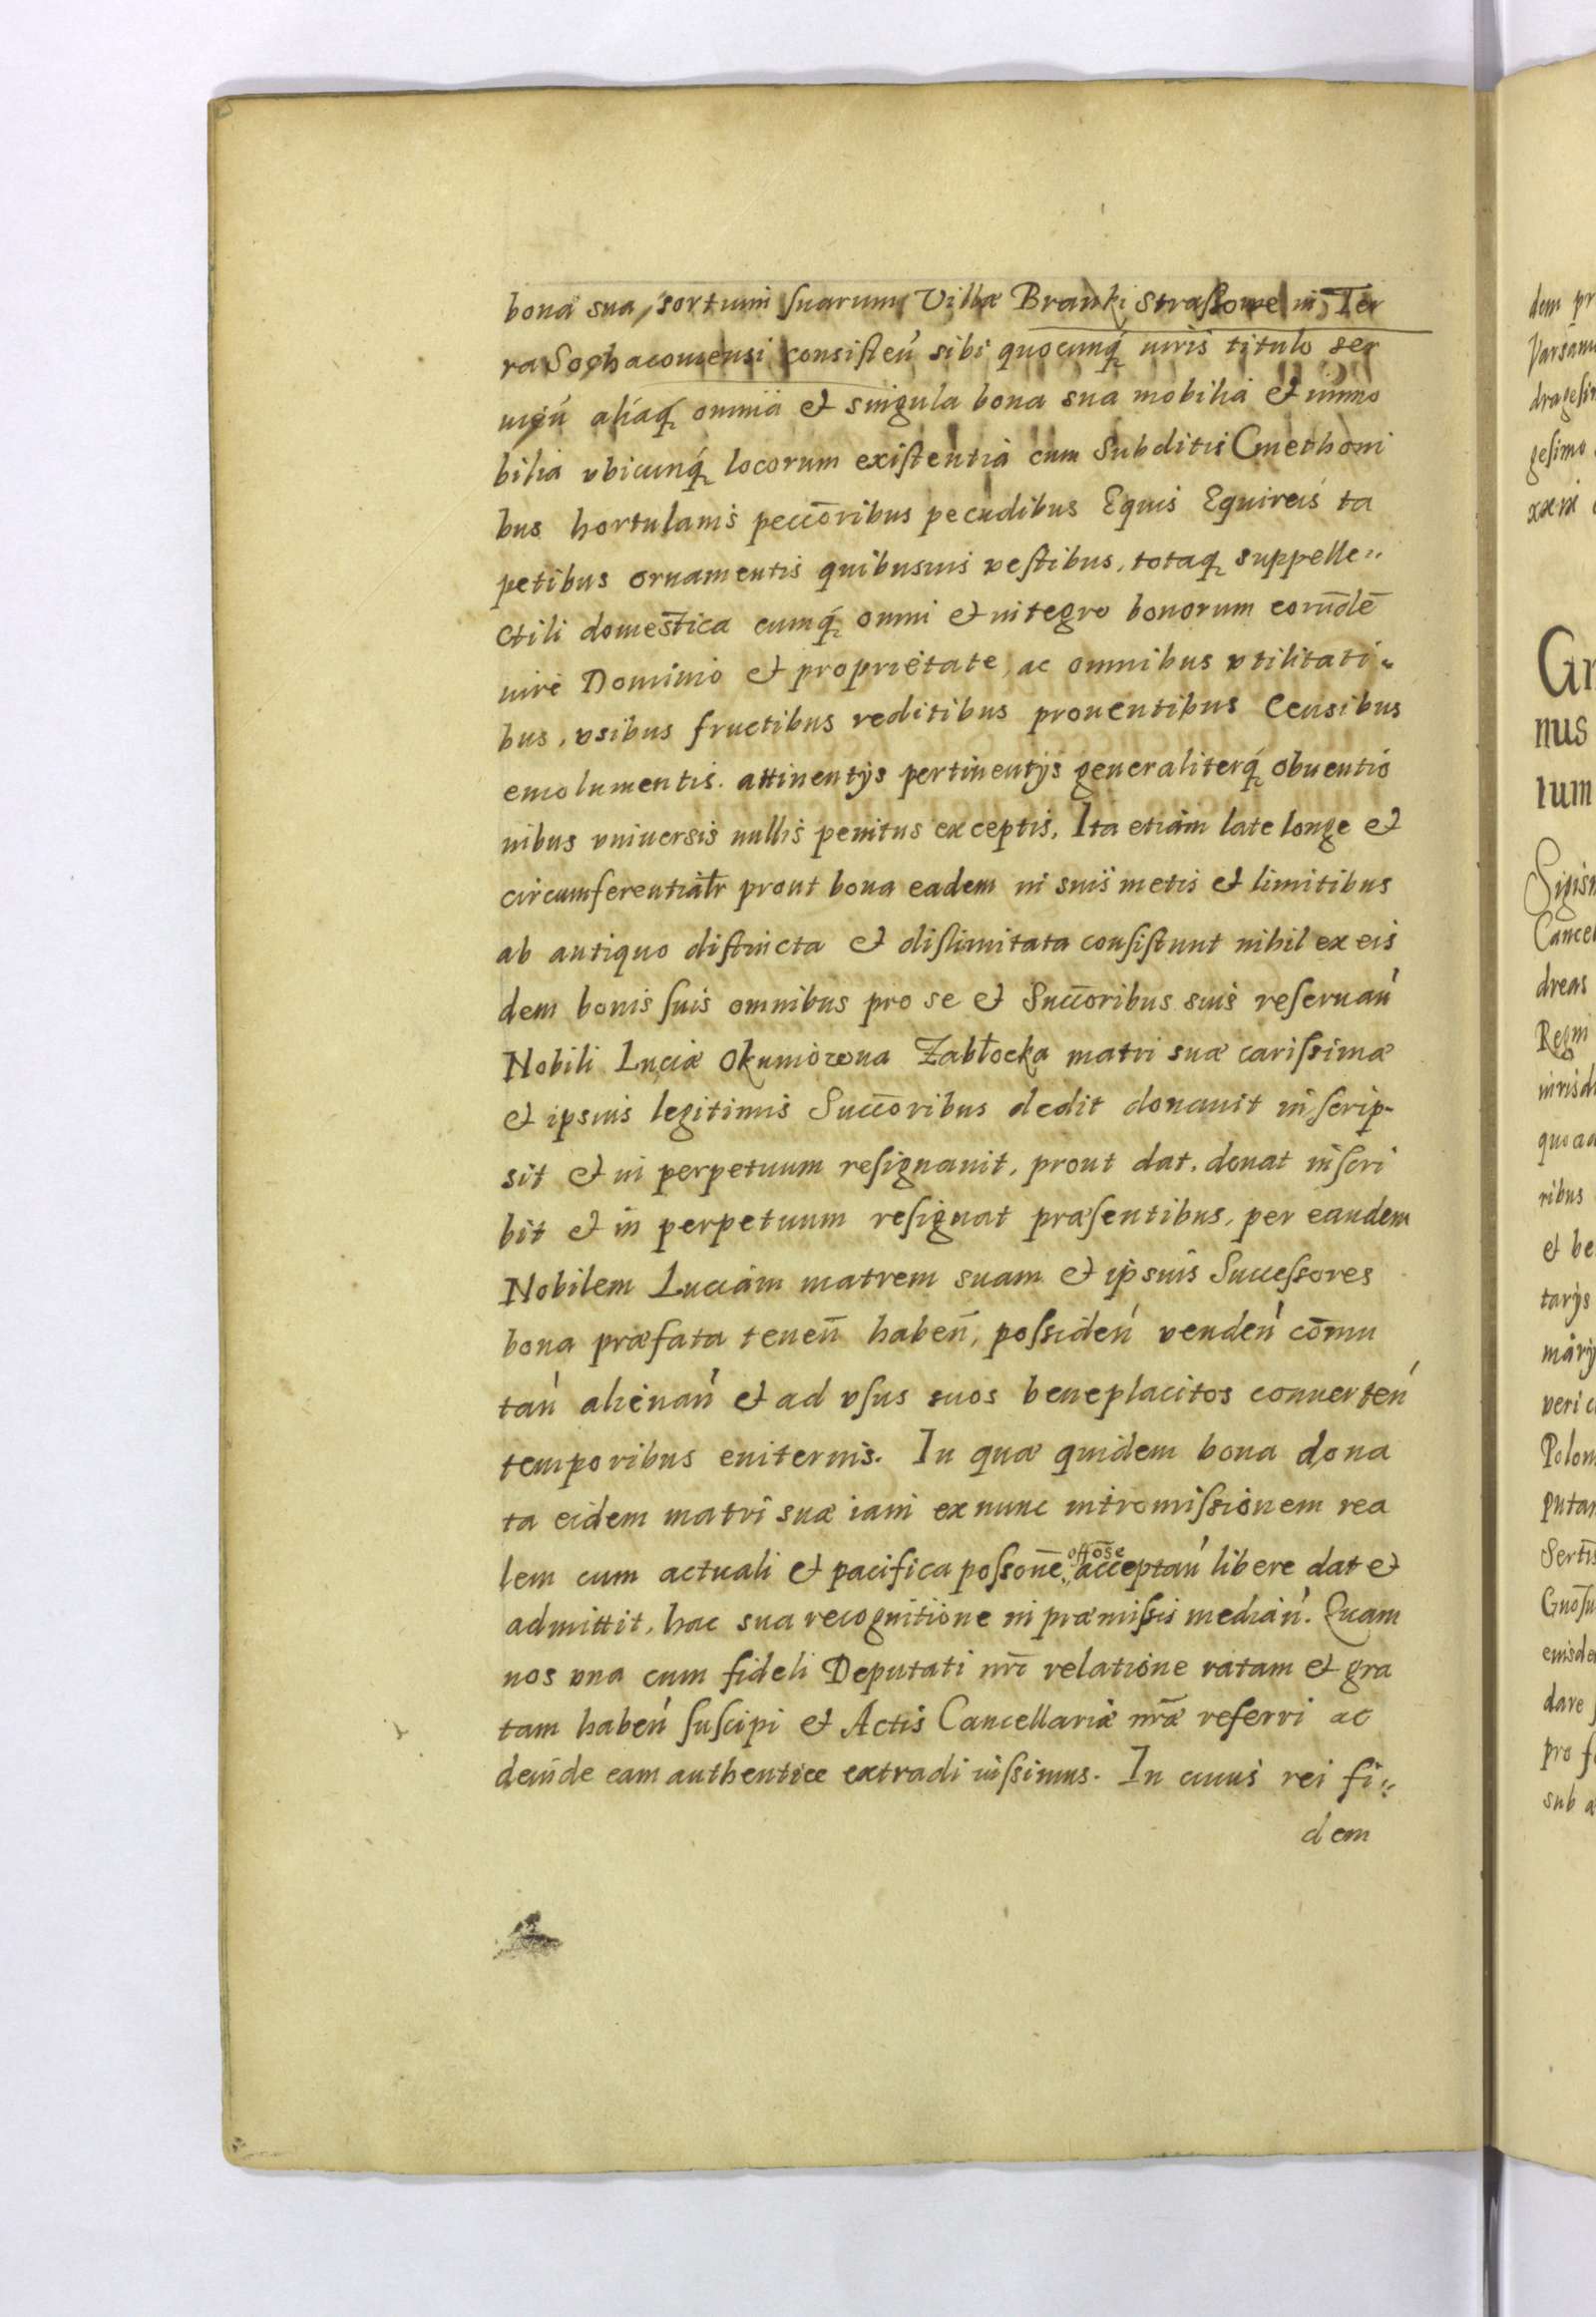 bona sua, sortium suarum Villæ Branki Straszowe in Ter
ra Sochaconiensi consisteń sibi quocunq́ iuris titulo ser
uień aliaq́ omnia et singula bona sua mobilia et immo
bilia vbicunq́ locorum existentia cum Subditis Cmethoni
bus hortulanis peccōribus pecudibus Equis Equireis ta
petibus ornamentis quibusuis vestibus, totaq́ suppelle„
ctili domestica cumq́ omni et integro bonorum eorūdē
iure Dominio et proprietate, ac omnibus vtilitati„
bus, vsibus fructibus reditibus prouentibus Censibus
emolumentis. attinentijs pertinentijs generaliterq́ obuentio
nibus vniuersis nullis penitus exceptis, Ita etiam late longe et
circumferentialr prout bona eadem in suis metis et limitibus
ab antiquo distincta et dislimitata consistunt nihil ex eis
dem bonis suis omnibus pro se et Succōribus suis reseruań
Nobili Luciæ Okuniowna Zabłocka matri suæ carissimæ
et ipsius legitimis Succōribus dedit donauit inscrip-
sit et in perpetuum resignauit, prout dat, donat inscri
bit et in perpetuum resignat præsentibus, per eandem
Nobilem Luciam matrem suam et ipsius Successores
bona præfata teneñ habeñ, possideń vendeń cōmu
tań alienań et ad vsus suos beneplacitos conuerteń
temporibus euiternis. In quæ quidem bona dona
ta eidem matri suæ iam ex nunc intromissionem rea
lem cum actuali et pacifica possonē, offōse acceptań libere dat et
admittit, hac sua recognitione in præmissis mediań. Quam
nos vna cum fideli Deputati nrī relatione ratam et gra
tam habeń suscipi et Actis Cancellariæ nrǣ referri ac
deinde eam authentice extradi iussimus. In cuius rei fi„
dem